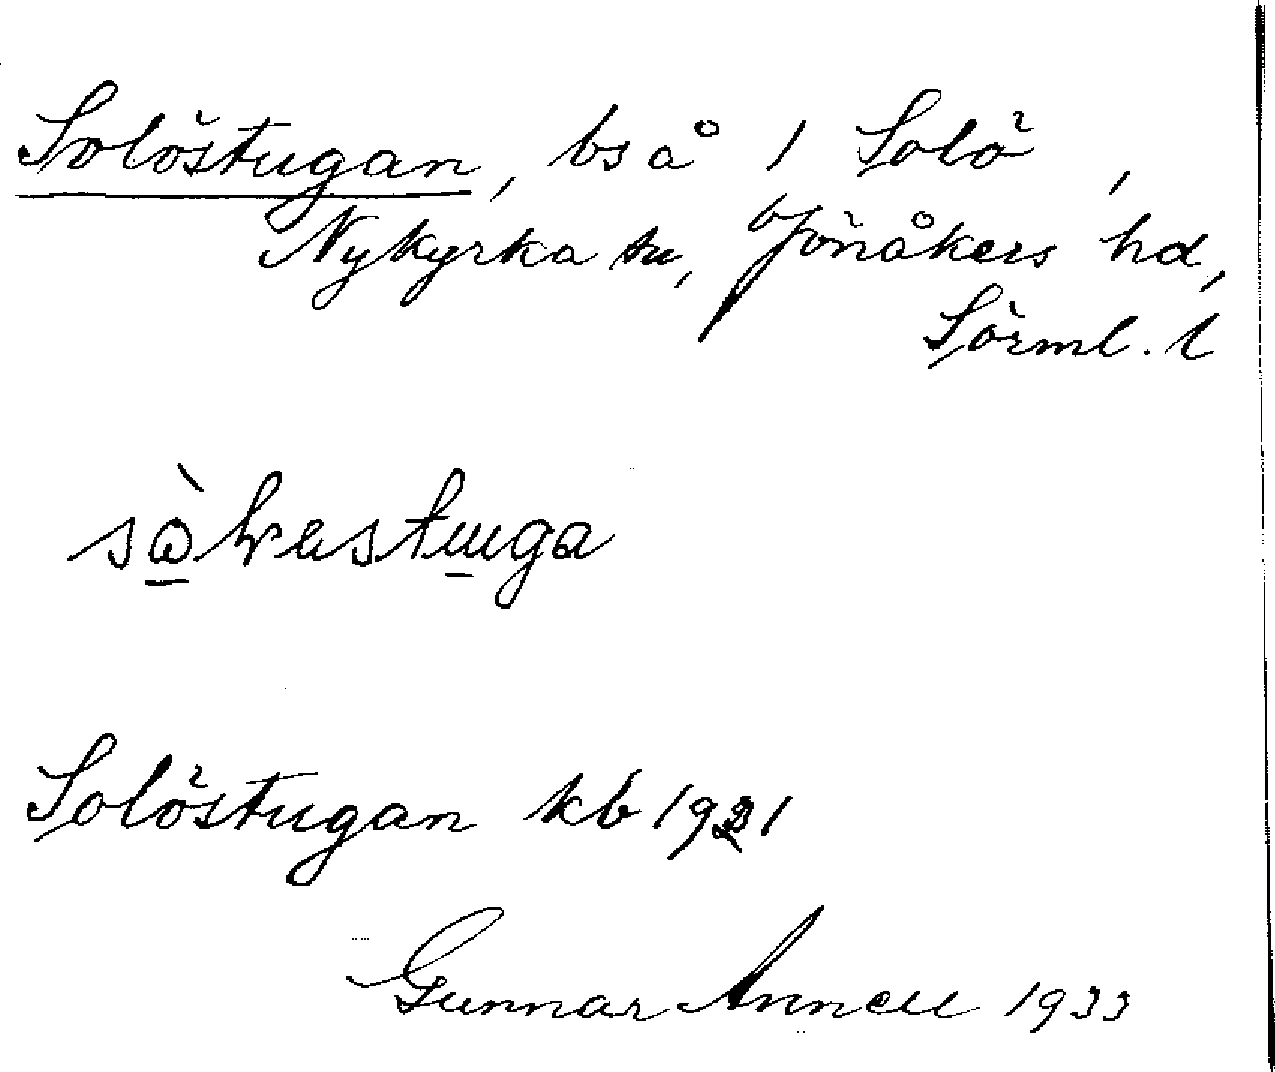 Solöstugan, bs å 1 Solö,
Nykyrka sn, Jönåkers hd,
Sörml. l
Solöstugan kb 1921
Gunnar Annell 1933